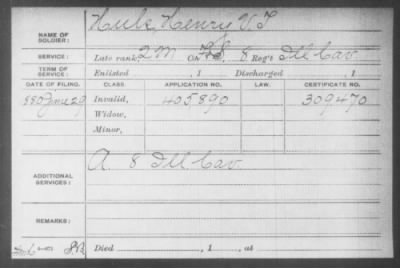 NAME OF SOLDIER: Hule, Henry V. T.
SERVICE: Late rank, 2 M Reg't 8 Ill Cav.
TERM OF SERVICE: Enlisted , 1 Discharged , 1
DATE OF FILING. CLASS. APPLICATION NO. LAW. CERTIFICATE NO.
880 June 29 Invalid, 405890 309470
Widow,
Minor,
ADDITIONAL SERVICES: A. 8 Ill Cav.
REMARKS:
Died , 1 , at